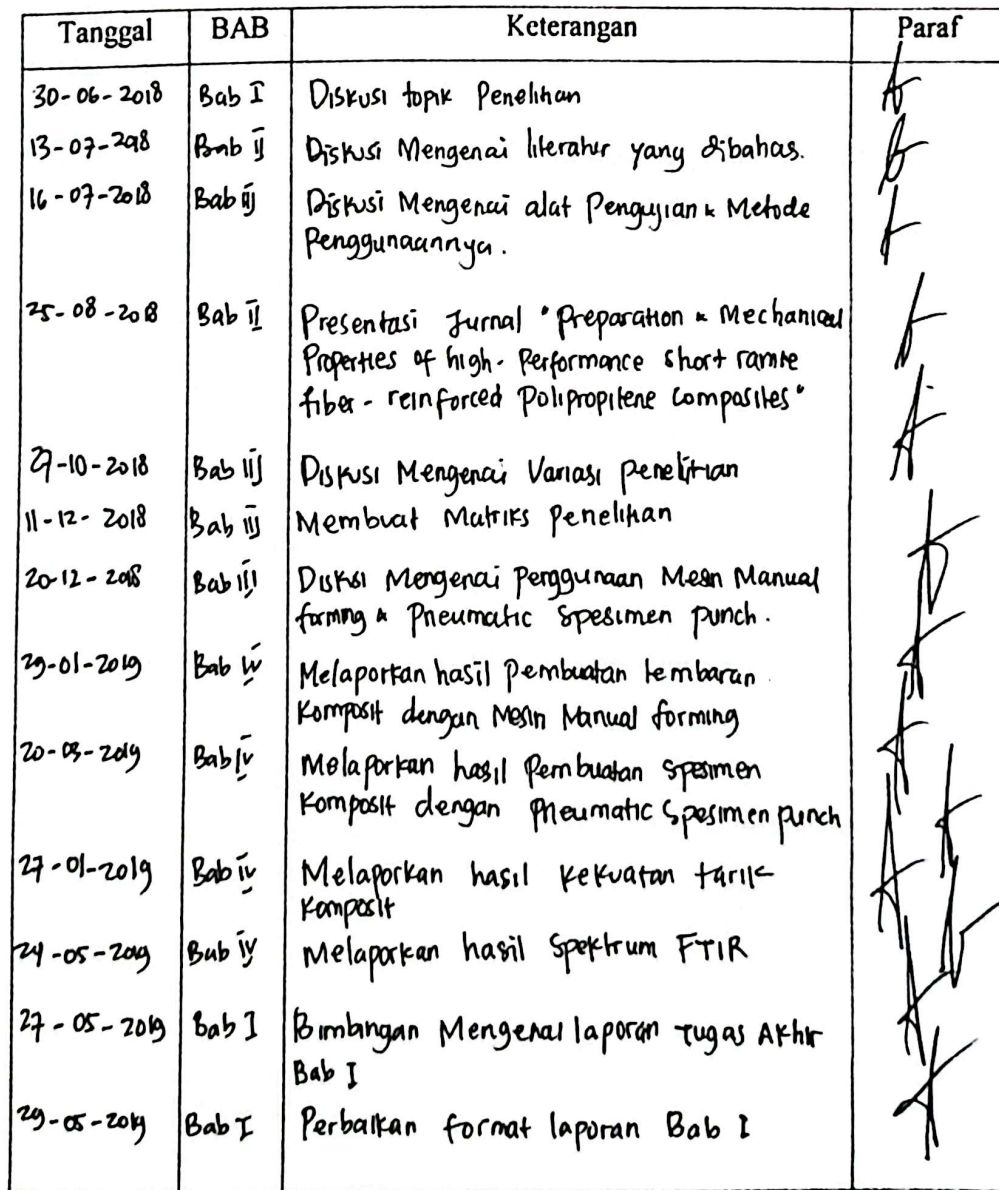 Tanggal BAB Keterangan Paraf
30-06-2018 Bab I Diskusi topik Penelitian
13-07-2018 Bab II Diskusi Mengenai literatur yang dibahas.
16-07-2018 Bab III Diskusi Mengenai alat Pengujian & Metode
Penggunaannya.
25-08-2018 Bab II Presentasi Jurnal "Preparation & Mechanical
Properties of high-Performance short ramie
fiber-reinforced Polipropilene Composites"
29-10-2018 Bab III Diskusi Mengenai Variasi penelitian
11-12-2018 Bab III Membuat Matriks Penelitian
20-12-2018 Bab III Diskusi Mengenai Penggunaan Mesin Manual
forming & Pneumatic Spesimen punch.
29-01-2019 Bab IV Melaporkan hasil Pembuatan lembaran
Komposit dengan Mesin Manual forming
20-03-2019 Bab IV Melaporkan hasil Pembuatan spesimen
Komposit dengan Pneumatic Spesimen punch
27-01-2019 Bab IV Melaporkan hasil Kekuatan tarik
Komposit
24-05-2019 Bab IV Melaporkan hasil Spektrum FTIR
27-05-2019 Bab I Bimbingan Mengenai laporan Tugas Akhir
Bab I
29-05-2019 Bab I Perbaikan format laporan Bab I